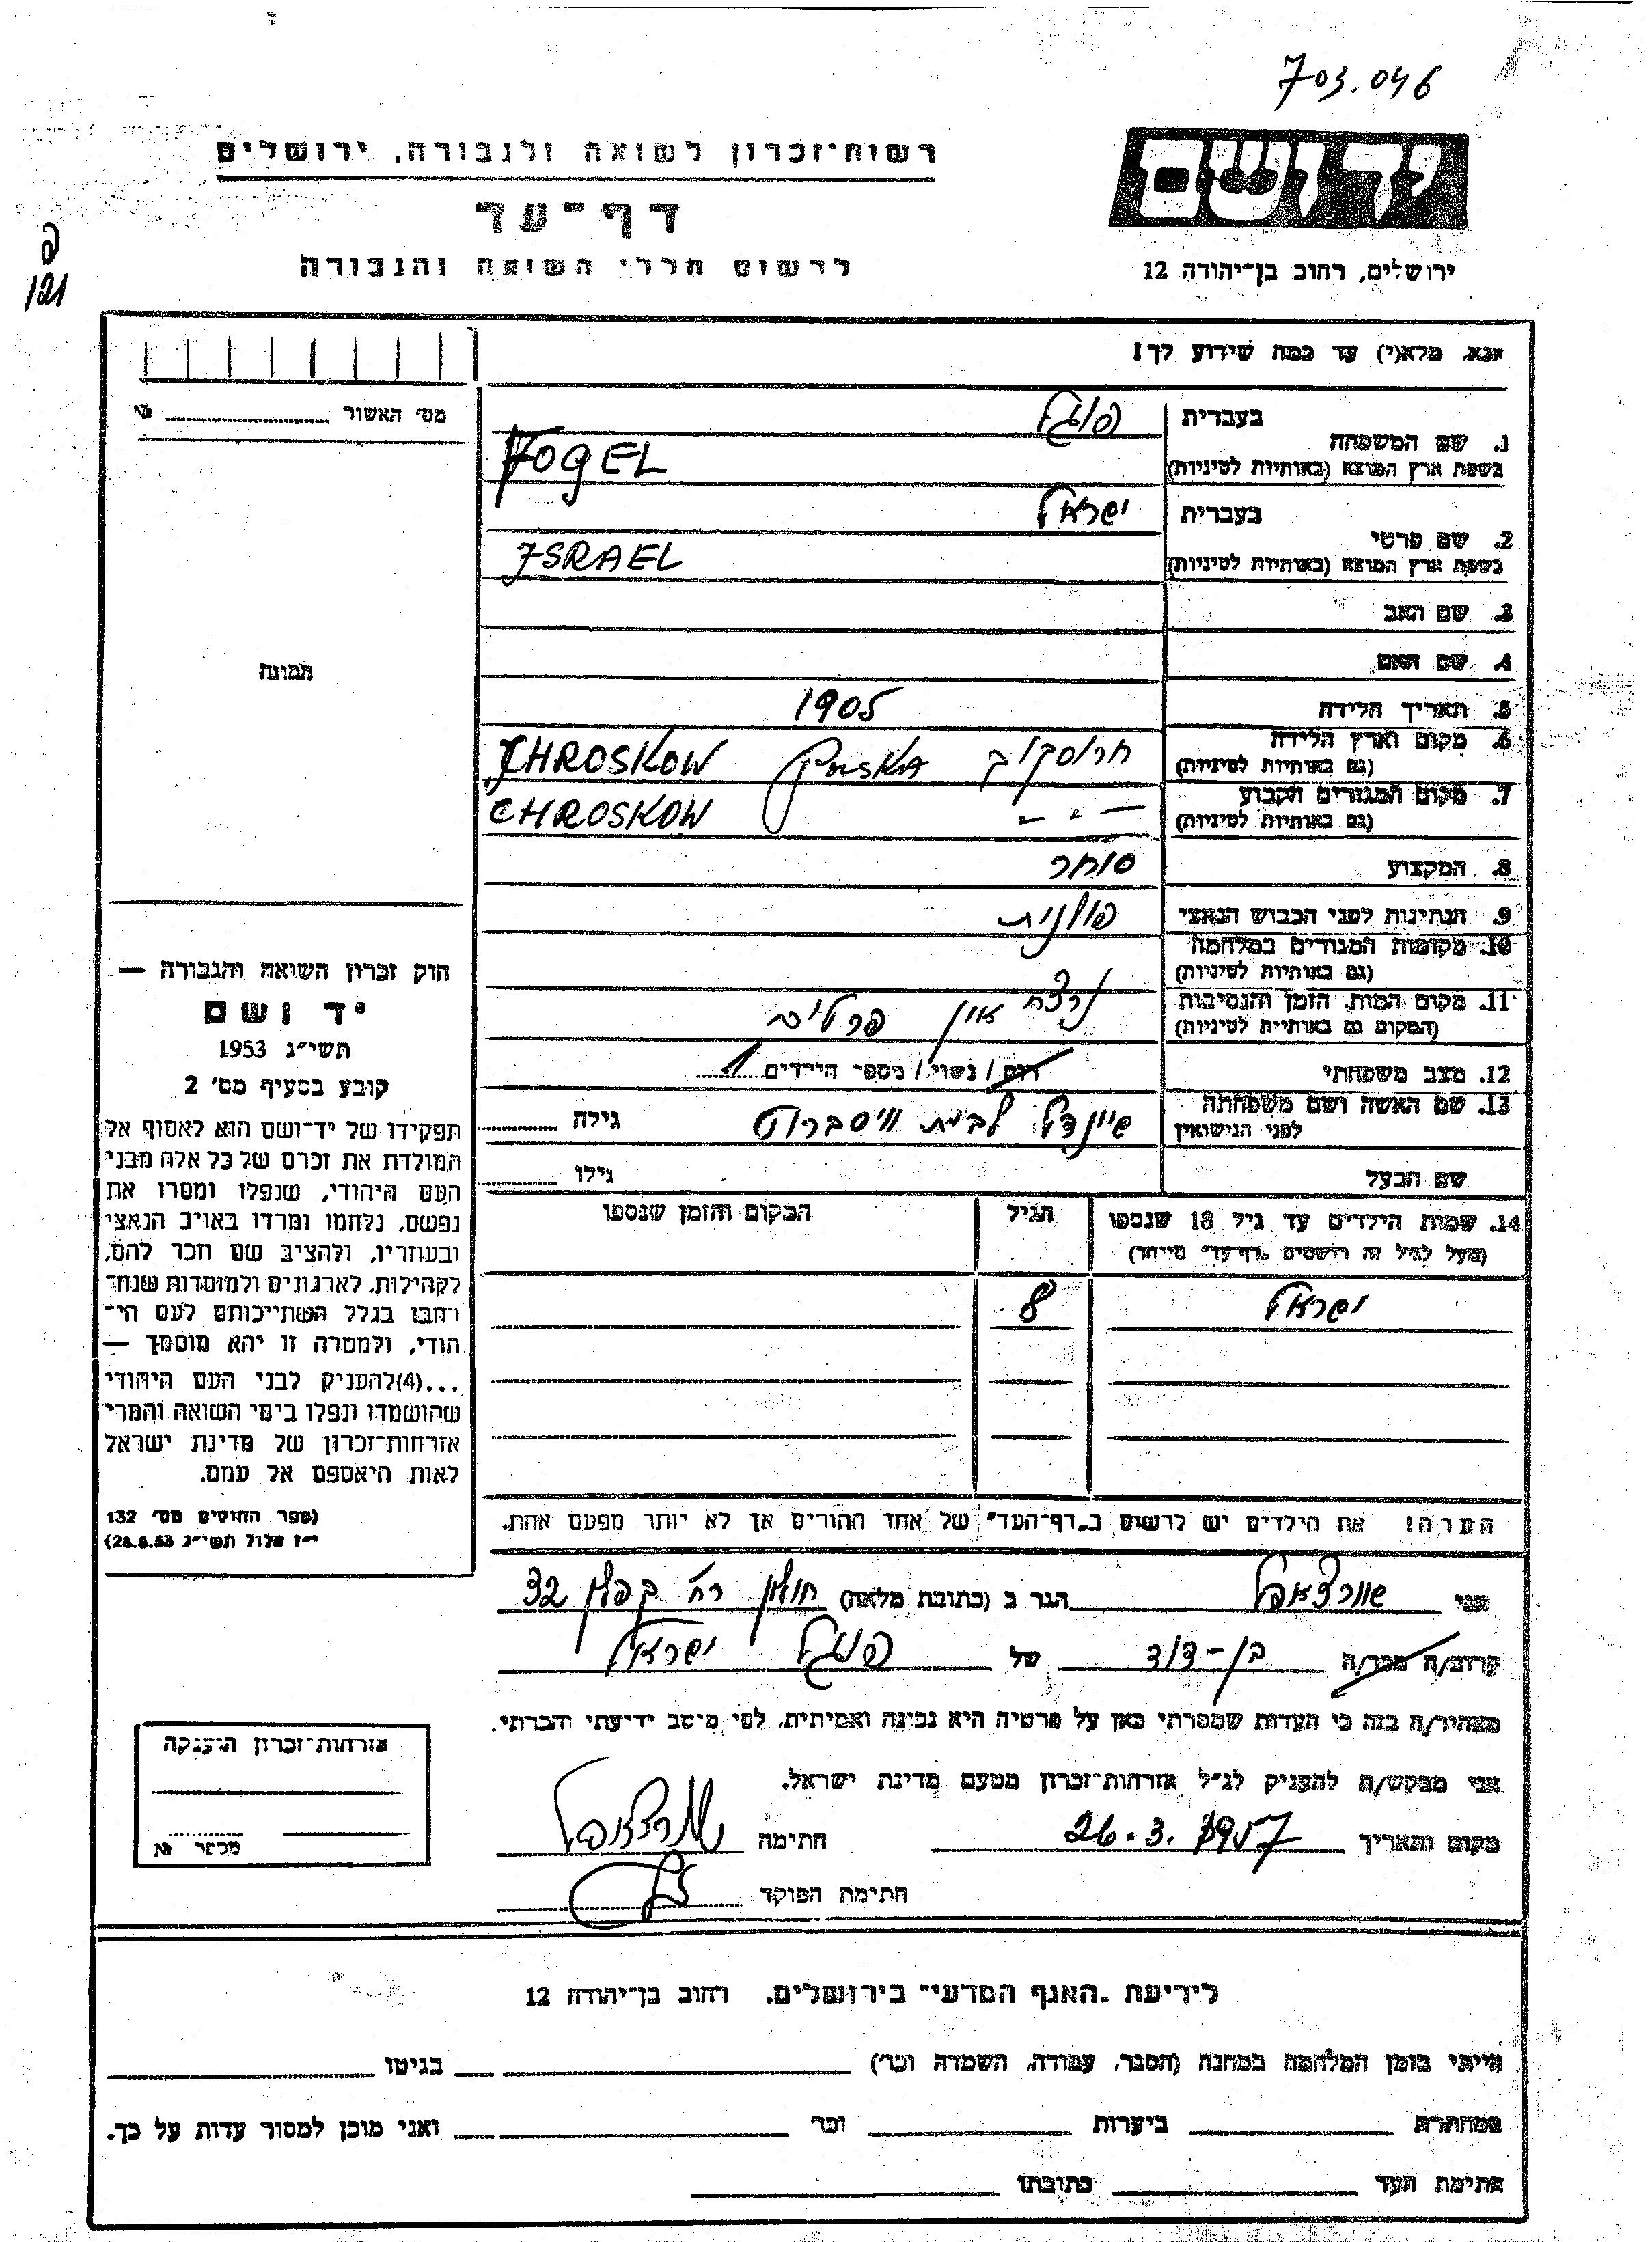 703.046
רשות־זכרון לשואה ולגבורה, ירושלים
יד ושם
דף־עד
לרשום חללי השואה והגבורה
ירושלים, רחוב בן־יהודה 12
פ
121
אנא, מלא(י) עד כמה שידוע לך!
מס׳ האשור № 
1. שם המשפחה
בעברית פוגל
בשפת ארץ המוצא (באותיות לטיניות) VOGEL
2. שם פרטי
בעברית ישראל
בשפת ארץ המוצא (באותיות לטיניות) JSRAEL
3. שם האב
4. שם האם
תמונה
5. תאריך הלידה 1905
6. מקום וארץ הלידה חרוסקוב CHROSKOW
(גם באותיות לטיניות)
7. מקום המגורים הקבוע CHROSKOW
(גם באותיות לטיניות)
8. המקצוע סוחר
9. הנתינות לפני הכבוש הנאצי פולנית
10. מקומות המגורים במלחמה
(גם באותיות לטיניות)
11. מקום המות, הזמן והנסיבות נרצח אין פרטים
(המקום גם באותיות לטיניות)
12. מצב משפחתי רוק / נשוי / מספר הילדים 1
13. שם האשה ושם משפחתה שיינדל לבית גילה
לפני הנישואין
שם הבעל גילו
14. שמות הילדים עד גיל 18 שנספו הגיל המקום והזמן שנספו
(מעל לגיל זה רושמים „דף־עד״ מיוחד)
ישראל 8
הערה! את הילדים יש לרשום ב„דף־העד״ של אחד ההורים אך לא יותר מפעם אחת.
חוק זכרון השואה והגבורה —
יד ושם
תשי״ג 1953
קובע בסעיף מס׳ 2
תפקידו של יד־ושם הוא לאסוף אל
המולדת את זכרם של כל אלה מבני
העם היהודי, שנפלו ומסרו את
נפשם, נלחמו ומרדו באויב הנאצי
ובעוזריו, ולהציב שם וזכר להם,
לקהילות, לארגונים ולמוסדות שנח־
רבו בגלל השתייכותם לעם הי־
הודי, ולמטרה זו יהא מוסמך —
...(4)להעניק לבני העם היהודי
שהושמדו ונפלו בימי השואה והמרי
אזרחות־זכרון של מדינת ישראל
לאות היאספם אל עמם.
(ספר החוקים מס׳ 132
י״ז אלול תשי״ג 28.8.53)
אני שוורצאפל הגר ב (כתובת מלאה) חולון רח׳ קפלן 32
קרוב/ה מכר/ה בן-דוד של פוגל ישראל
מצהיר/ה בזה כי העדות שמסרתי כאן על פרטיה היא נכונה ואמיתית, לפי מיטב ידיעתי והכרתי.
אני מבקש/ת להעניק לנ״ל אזרחות־זכרון מטעם מדינת ישראל.
מקום ותאריך 26.3.1957 חתימה שוורצאפל
חתימת הפוקד
אזרחות־זכרון הוענקה
מספר №
לידיעת „האגף המדעי״ בירושלים, רחוב בן־יהודה 12
הייתי בזמן המלחמה במחנה (הסגר, עבודה, השמדה וכו׳) בגיטו
במחתרת ביערות וכו׳ ואני מוכן למסור עדות על כך.
חתימת העד כתובתו